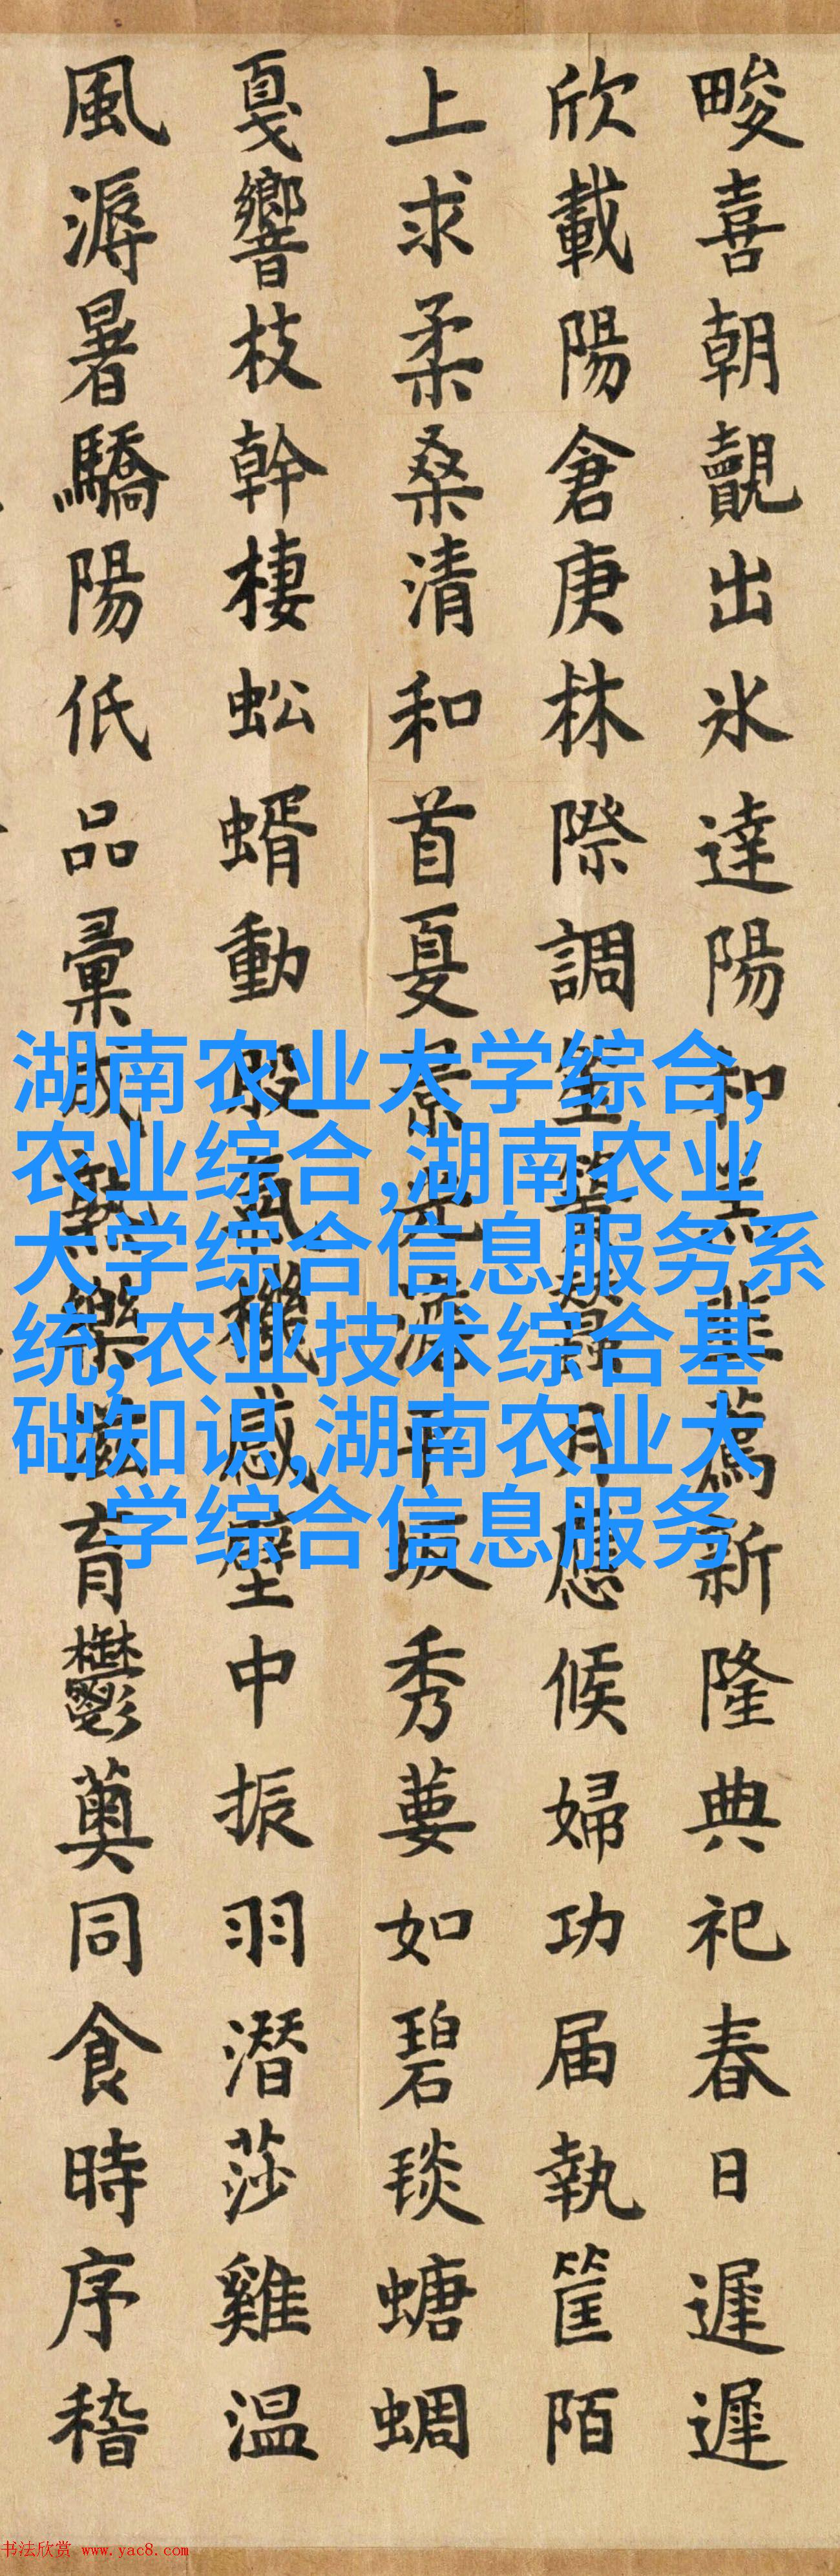 畯喜朝覿出氷達陽和羔韭薦新隆典祀春日遲遲
欣載陽倉庚林際調笙簧蠶月應候婦功届執筐陌
上求柔桑清和首夏景光濃平坂秀葽如碧琰螗蜩
戛響枝幹棲蚣蝑動股氣機感壁中振羽潛莎雞温
風溽暑驕陽低品彙成熟樂滋育鬱薁同食時序稽
湖南农业大学综合,
农业综合,湖南农业
大学综合信息服务系
统,农业技术综合基
础知识,湖南农业大
学综合信息服务
书法欣赏 www.yac8.com